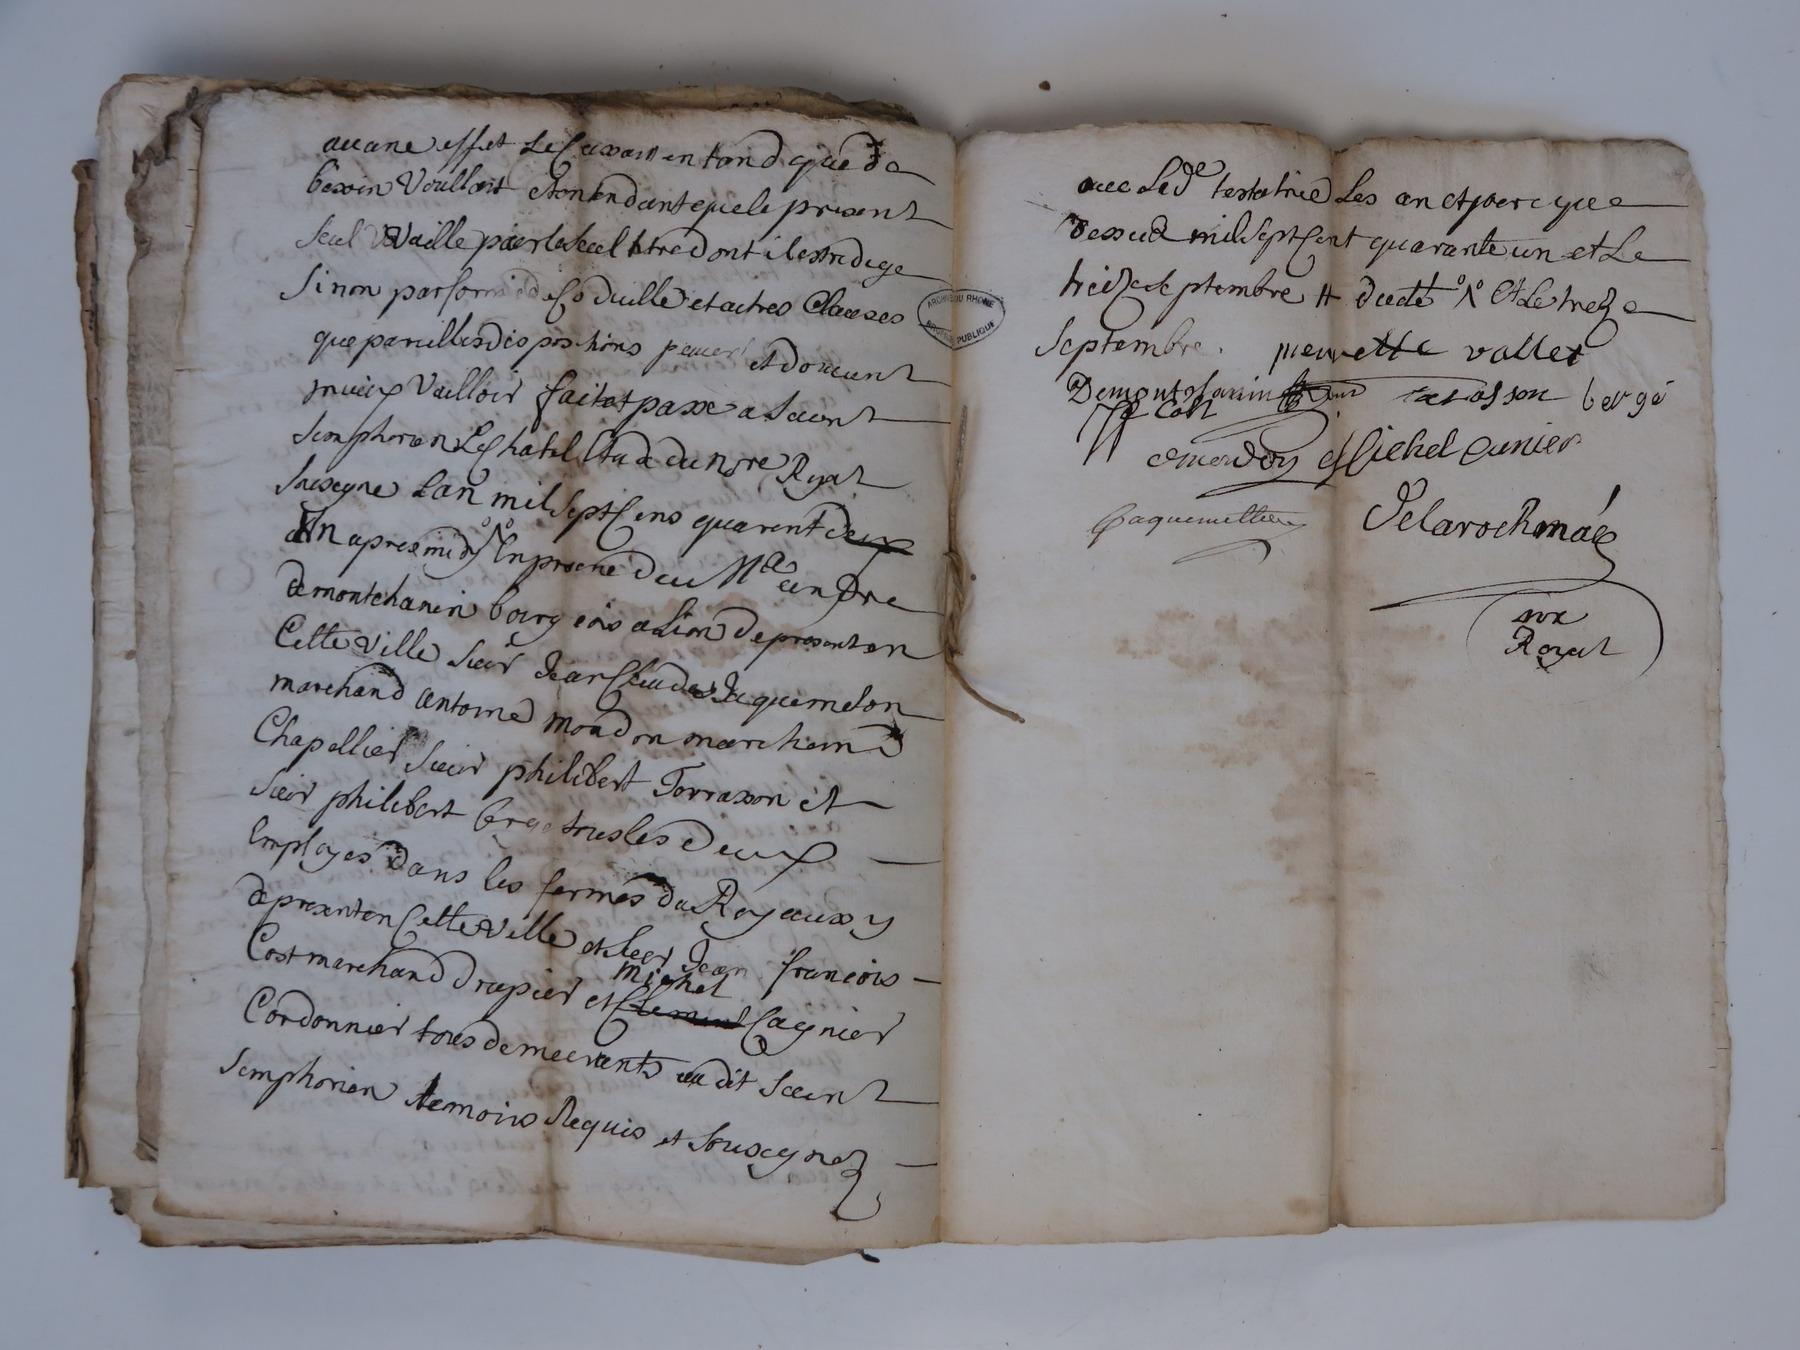 aucune effet Le Cassant entand que de
besoin Voullant Et entendant que le present
seul Vaille par le seul titre dont il est redigé
sinon par forme de Codicille et autres Clauses
que pareilles dispositions peuvent et doivent
mieux Vailloir fait et passé a Saint
Simphorien Le Chatel Etude du Nore Royal
Susigné L'an mil Sept Cens quarent deux
un apres midy En presence du Mre andre
de montchanin bourgeois a Lion de present en
Cette Ville Sieur Jean Claude Jaquemeton
marchand antoine moudon marchand
Chapellier Sieur philibert Terrasson et
Sieur philibert berge tous les deux
Employes dans les fermes du Roy aussy
de present en Cette Ville et sieur Jean francois
Cost marchand drapier et Clement michel Cagnier
Cordonnier tous demeurants au dit Saint
Simphorien temoins Requis et Sousignez
ARCHIVES DU RHÔNE
PUBLIQUE
avec Lade testatrice Les an et jour que
dessus mil Sept Cent quarante un et Le
treize Septembre Et Le treize
Septembre . pierrette vallet
Demontchanin terasson bergé
Cost
moudon Michel Cunier
Jaquemetton Delarochmáe
nore
Royal